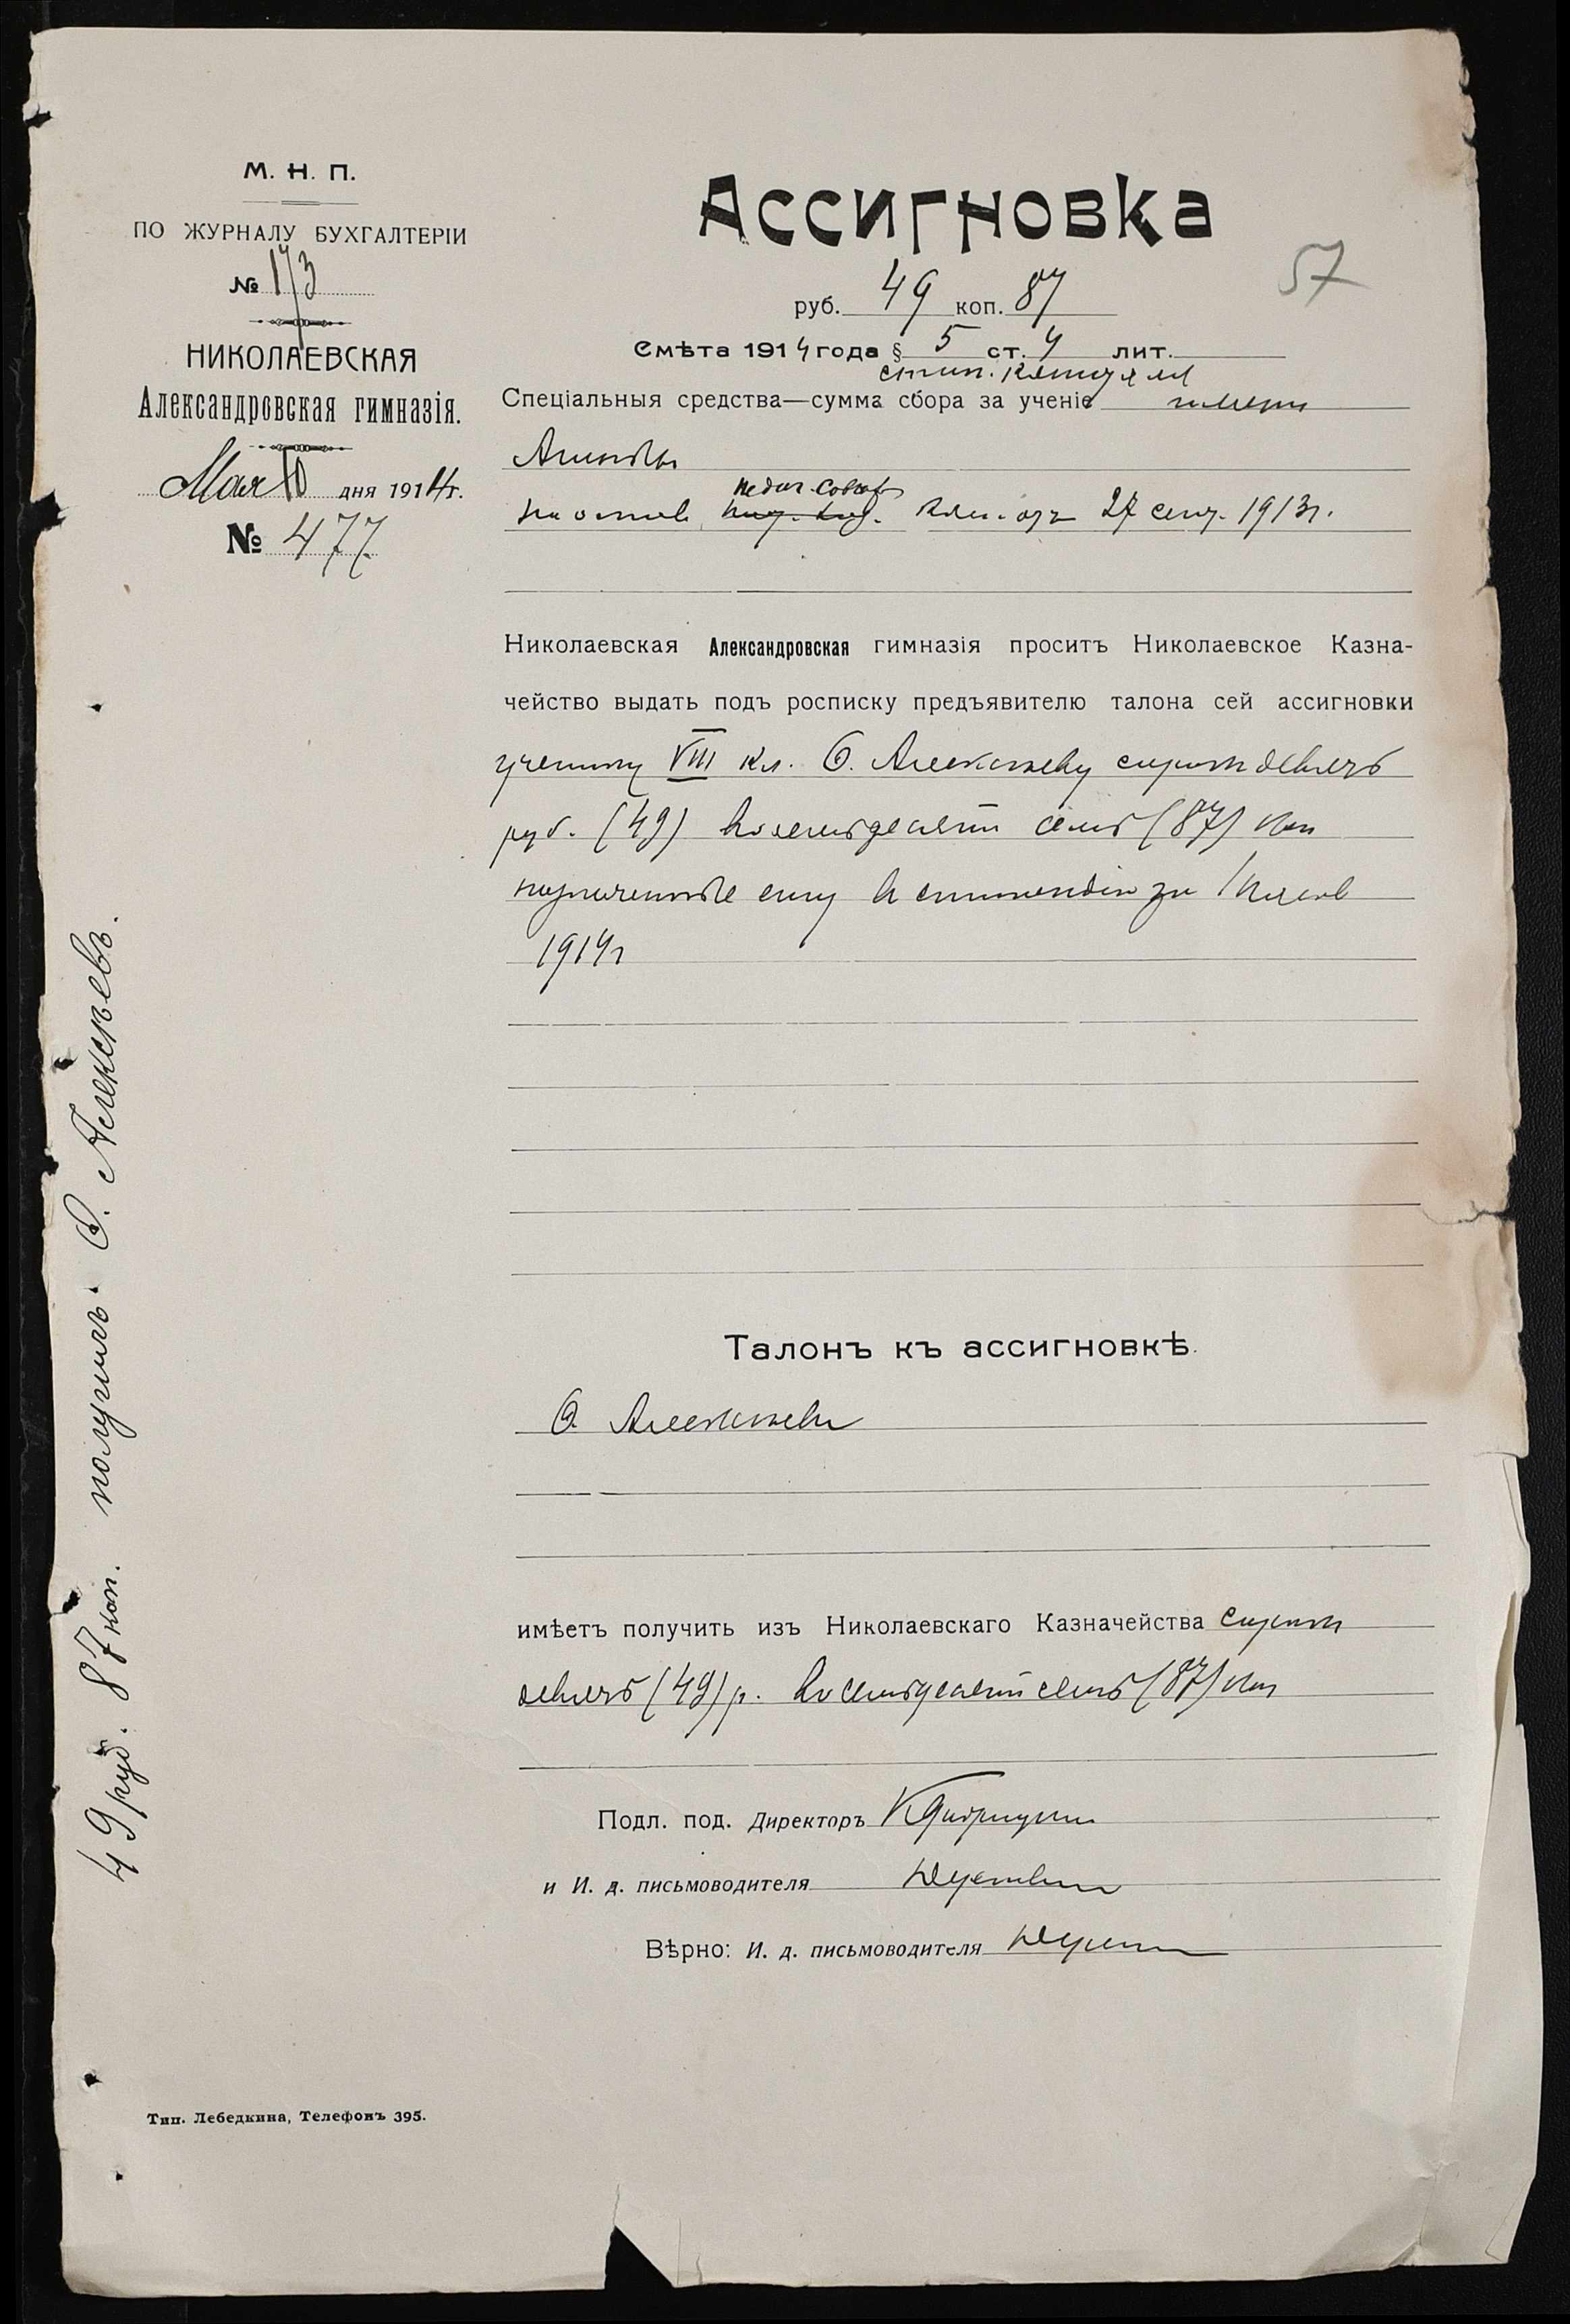 М. Н. П.
ПО ЖУРНАЛУ БУХГАЛТЕРІИ
№ 173
НИКОЛАЕВСКАЯ
Александровская гимназія.
Мая 10 дня 1914 г.
№ 477
Ассигновка
57
руб. 49 коп. 87
Смѣта 1914 года § 5 ст. 4 лит.
стип.
Спеціальныя средства—сумма сбора за ученіе
педаг. совѣт
на основ. отъ 27 сент. 1913 г.
Николаевская Александровская гимназія проситъ Николаевское Казна-
чейство выдать подъ росписку предъявителю талона сей ассигновки
ученику VIII кл. Ѳ. Алексѣеву сорокъ девять
руб. (49) восемьдесятъ семь (87) коп
назначенные ему въ стипендію за 1 полов
1914 г
Талонъ къ ассигновкѣ.
Ѳ. Алексѣевъ
имѣетъ получить изъ Николаевскаго Казначейства сорокъ
девять (49) р. восемьдесятъ семь (87) коп
Подл. под. Директоръ
и И. д. письмоводителя
Вѣрно: И. д. письмоводителя
49 руб. 87 коп. получилъ Ѳ. Алексѣевъ.
Тип. Лебедкина, Телефонъ 395.